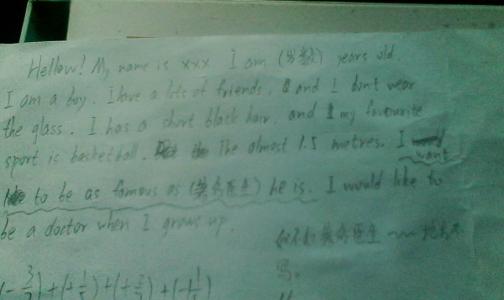 Hellow! My name is xxx I am (岁数) years old.
I am a boy. I have a lots of friends. and I don't wear
the glass. I has a short black hair, and my favourite
sport is basketball. The almost 1.5 metres. I want
to be as famous as (某名医生) he is. I would like to
be a doctor when I grows up.
写。
(-3/7)+(+1/5)+(+2/7)+(-1 1/5)